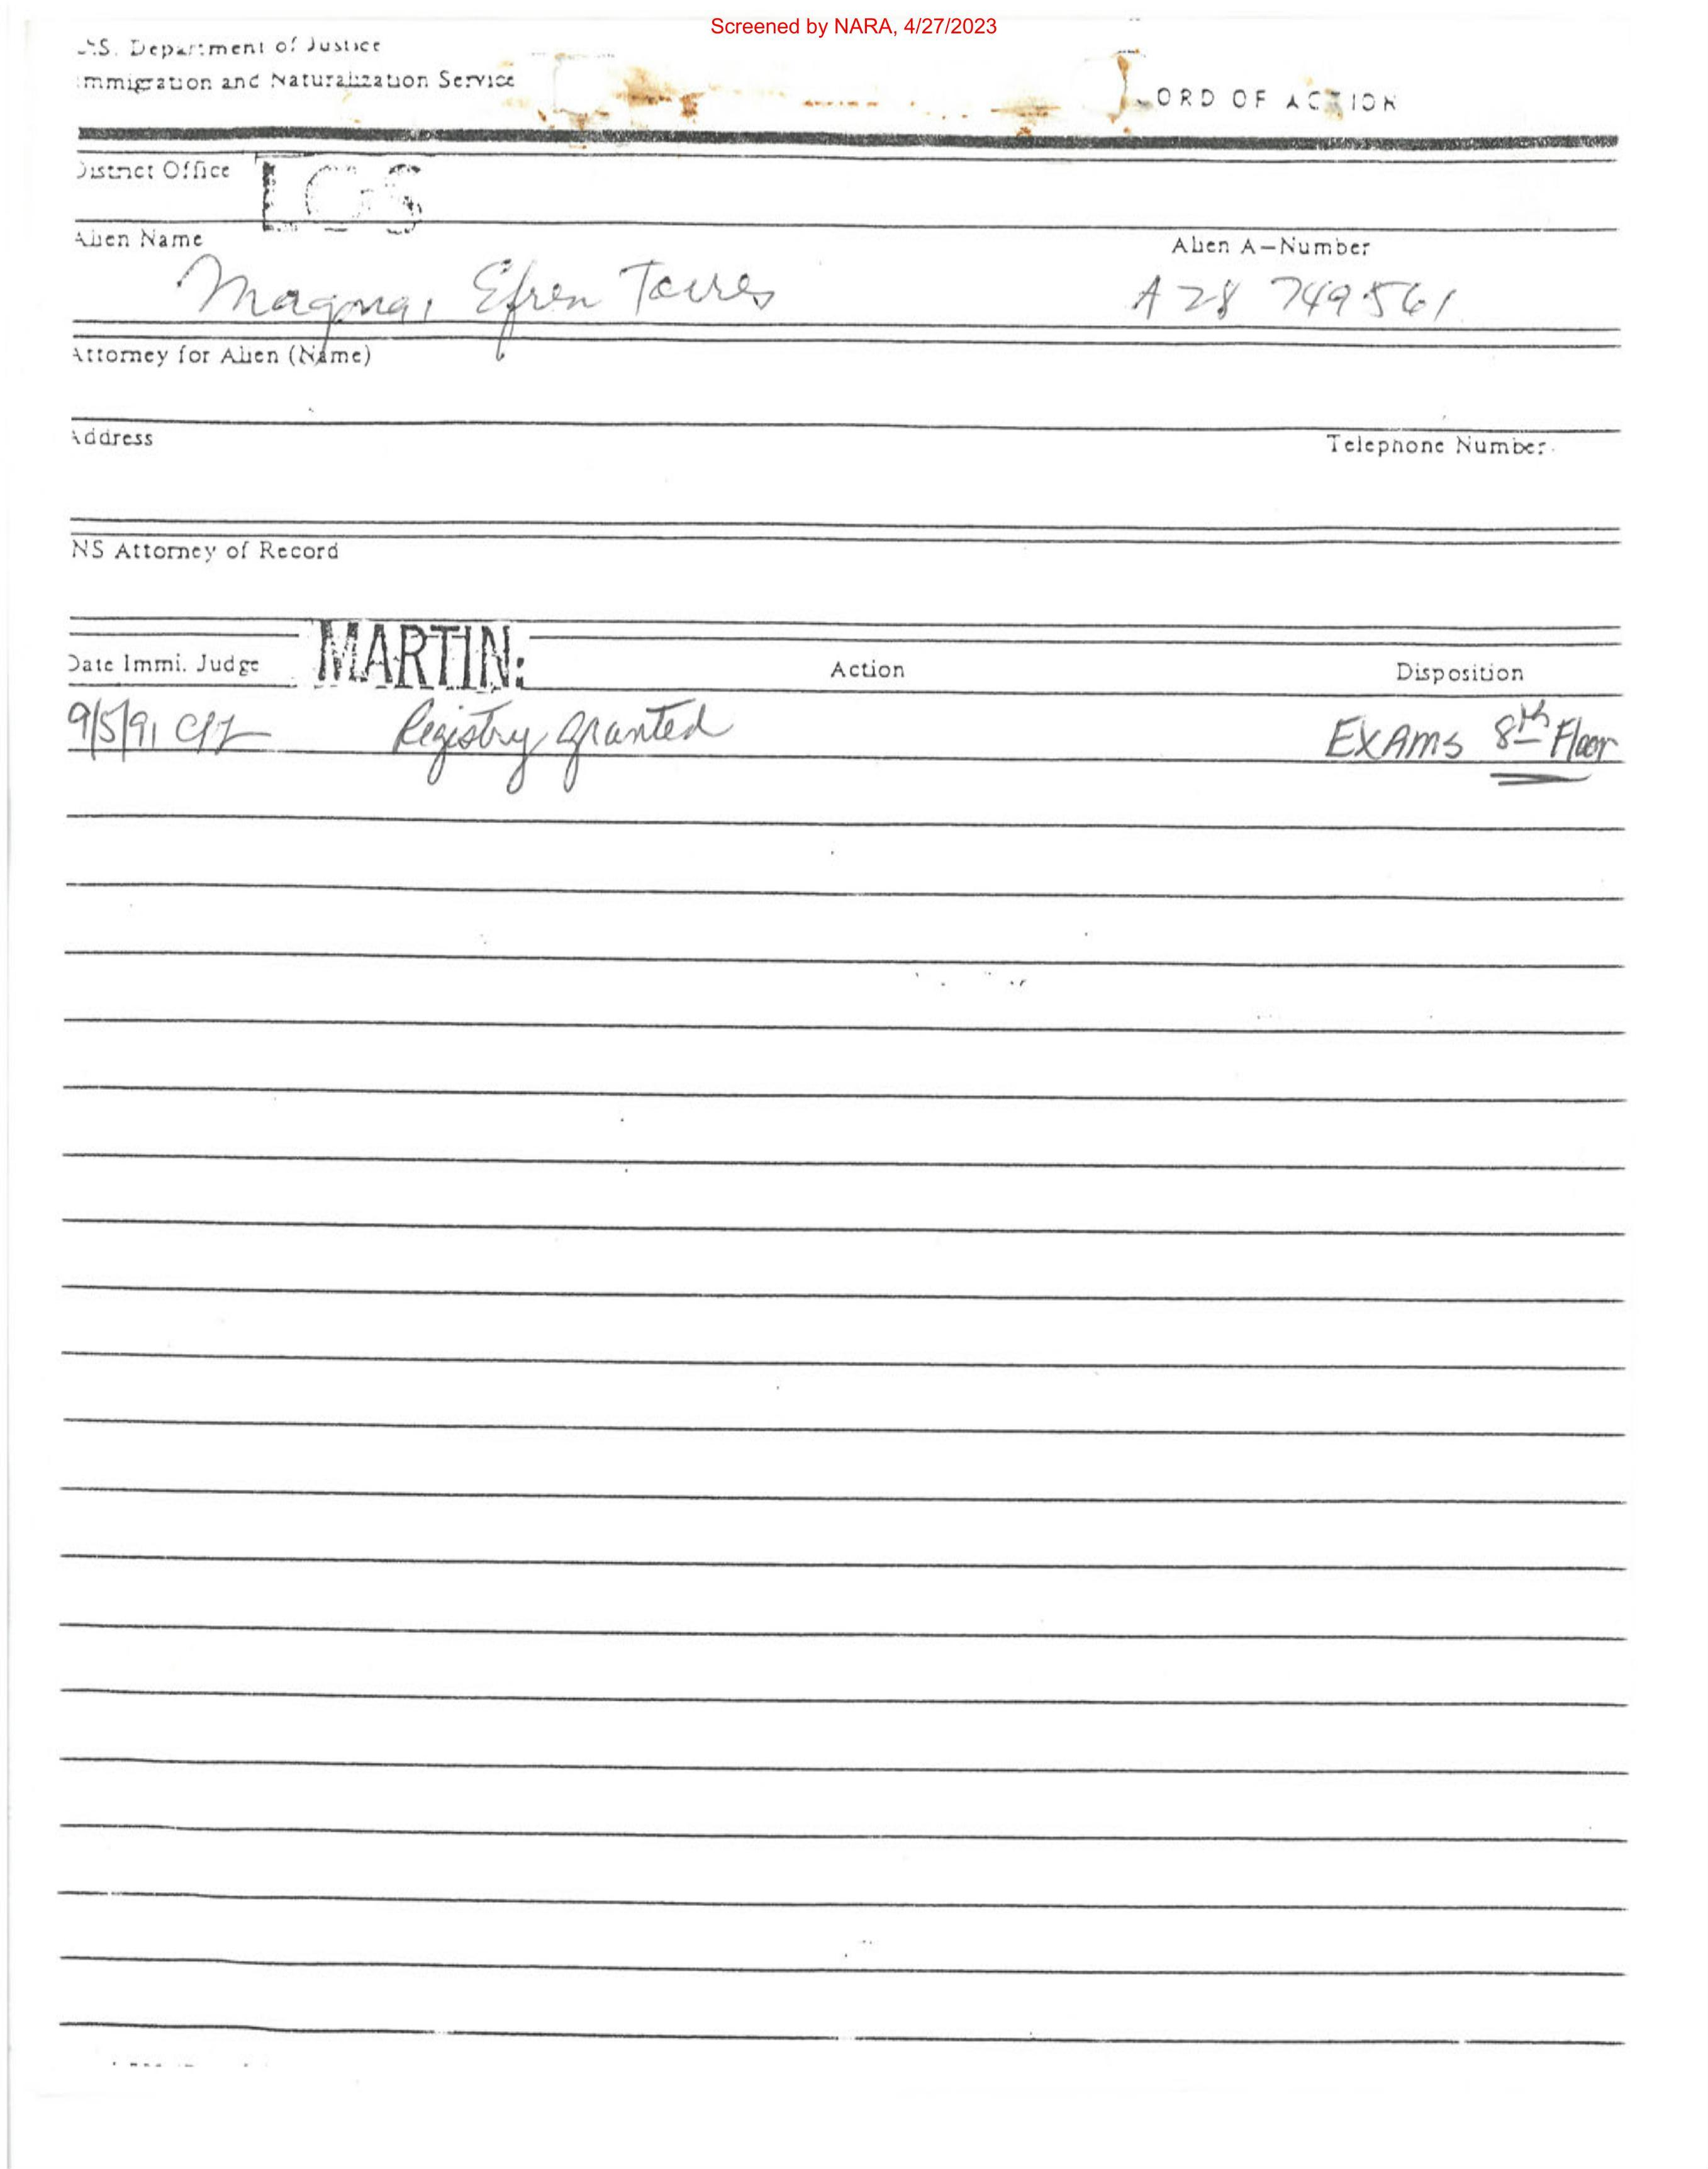 Screened by NARA, 4/27/2023
U.S. Department of Justice
Immigration and Naturalization Service
ORD OF ACTION
District Office
Alien Name
Alien A-Number
Efren Torres
A28 749561
Attorney for Alien (Name)
Address
Telephone Number
NS Attorney of Record
MARTIN
Date Immi. Judge
Action
Disposition
9/5/91
Registry granted
EXAMS 8th Floor